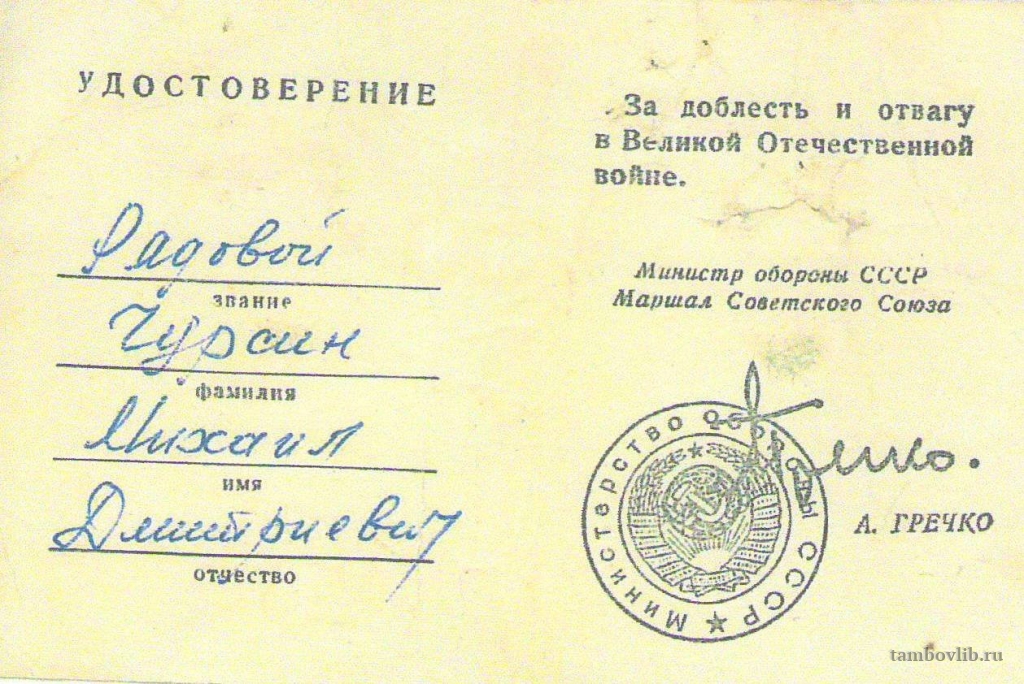 УДОСТОВЕРЕНИЕ
Рядовой
звание
Чурсин
фамилия
Михаил
имя
Дмитриевич
отчество
За доблесть и отвагу
в Великой Отечественной
войне.
Министр обороны СССР
Маршал Советского Союза
Министерство Обороны СССР
Гречко.
А. ГРЕЧКО
tambovlib.ru